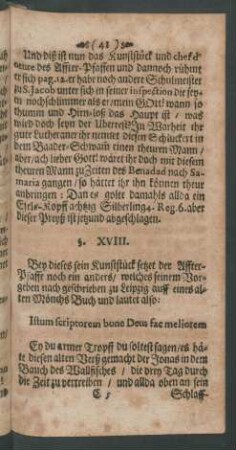 (41)
Und diß ist nun das Kunststück und chef d'
oeuvre des Affter-Pfaffen und dannoch rühmt
er sich pag. 12. er habe noch andere Schulmeister
zu S. Jacob unter sich in seiner inspection der sey
noch schlimmer als er / mein GOtt! wann so
thumm und Hirn-loß das Haupt ist / was
wird doch seyn der Überrest? In Warheit ihr
gute Lutheraner ihr nennet diesen Schückart in
dem Baader-Schwaiß einen theuren Mann /
aber / ach lieber Gott! wäret ihr doch mit diesem
theuren Mann zu Zeiten des Benadad nach Sa-
maria gangen / so hättet ihr ihn können theur
anbringen: Dan es golte damahls allda ein
Esels-Kopff achtzig Silberling 4. Reg. 6. aber
dieser Preyß ist jetzund abgeschlagen.
§. XVIII.
Bey dieses sein Kunststück setzet der Affter-
Pfaffe noch ein anders / welches seinem Vor-
geben nach geschrieben zu Leipzig auff eines al-
ten Mönchs Buch und lautet also:
Istum scriptorem bone Deus fac meliorem
Ey du armer Tropff du soltest sagen / es hä-
te diesen alten Verß gemacht der Jonas in dem
Bauch des Wallfisches / die drey Tag durch
die Zeit zu vertreiben / und allda oben an sein
C 5 Schlaff-